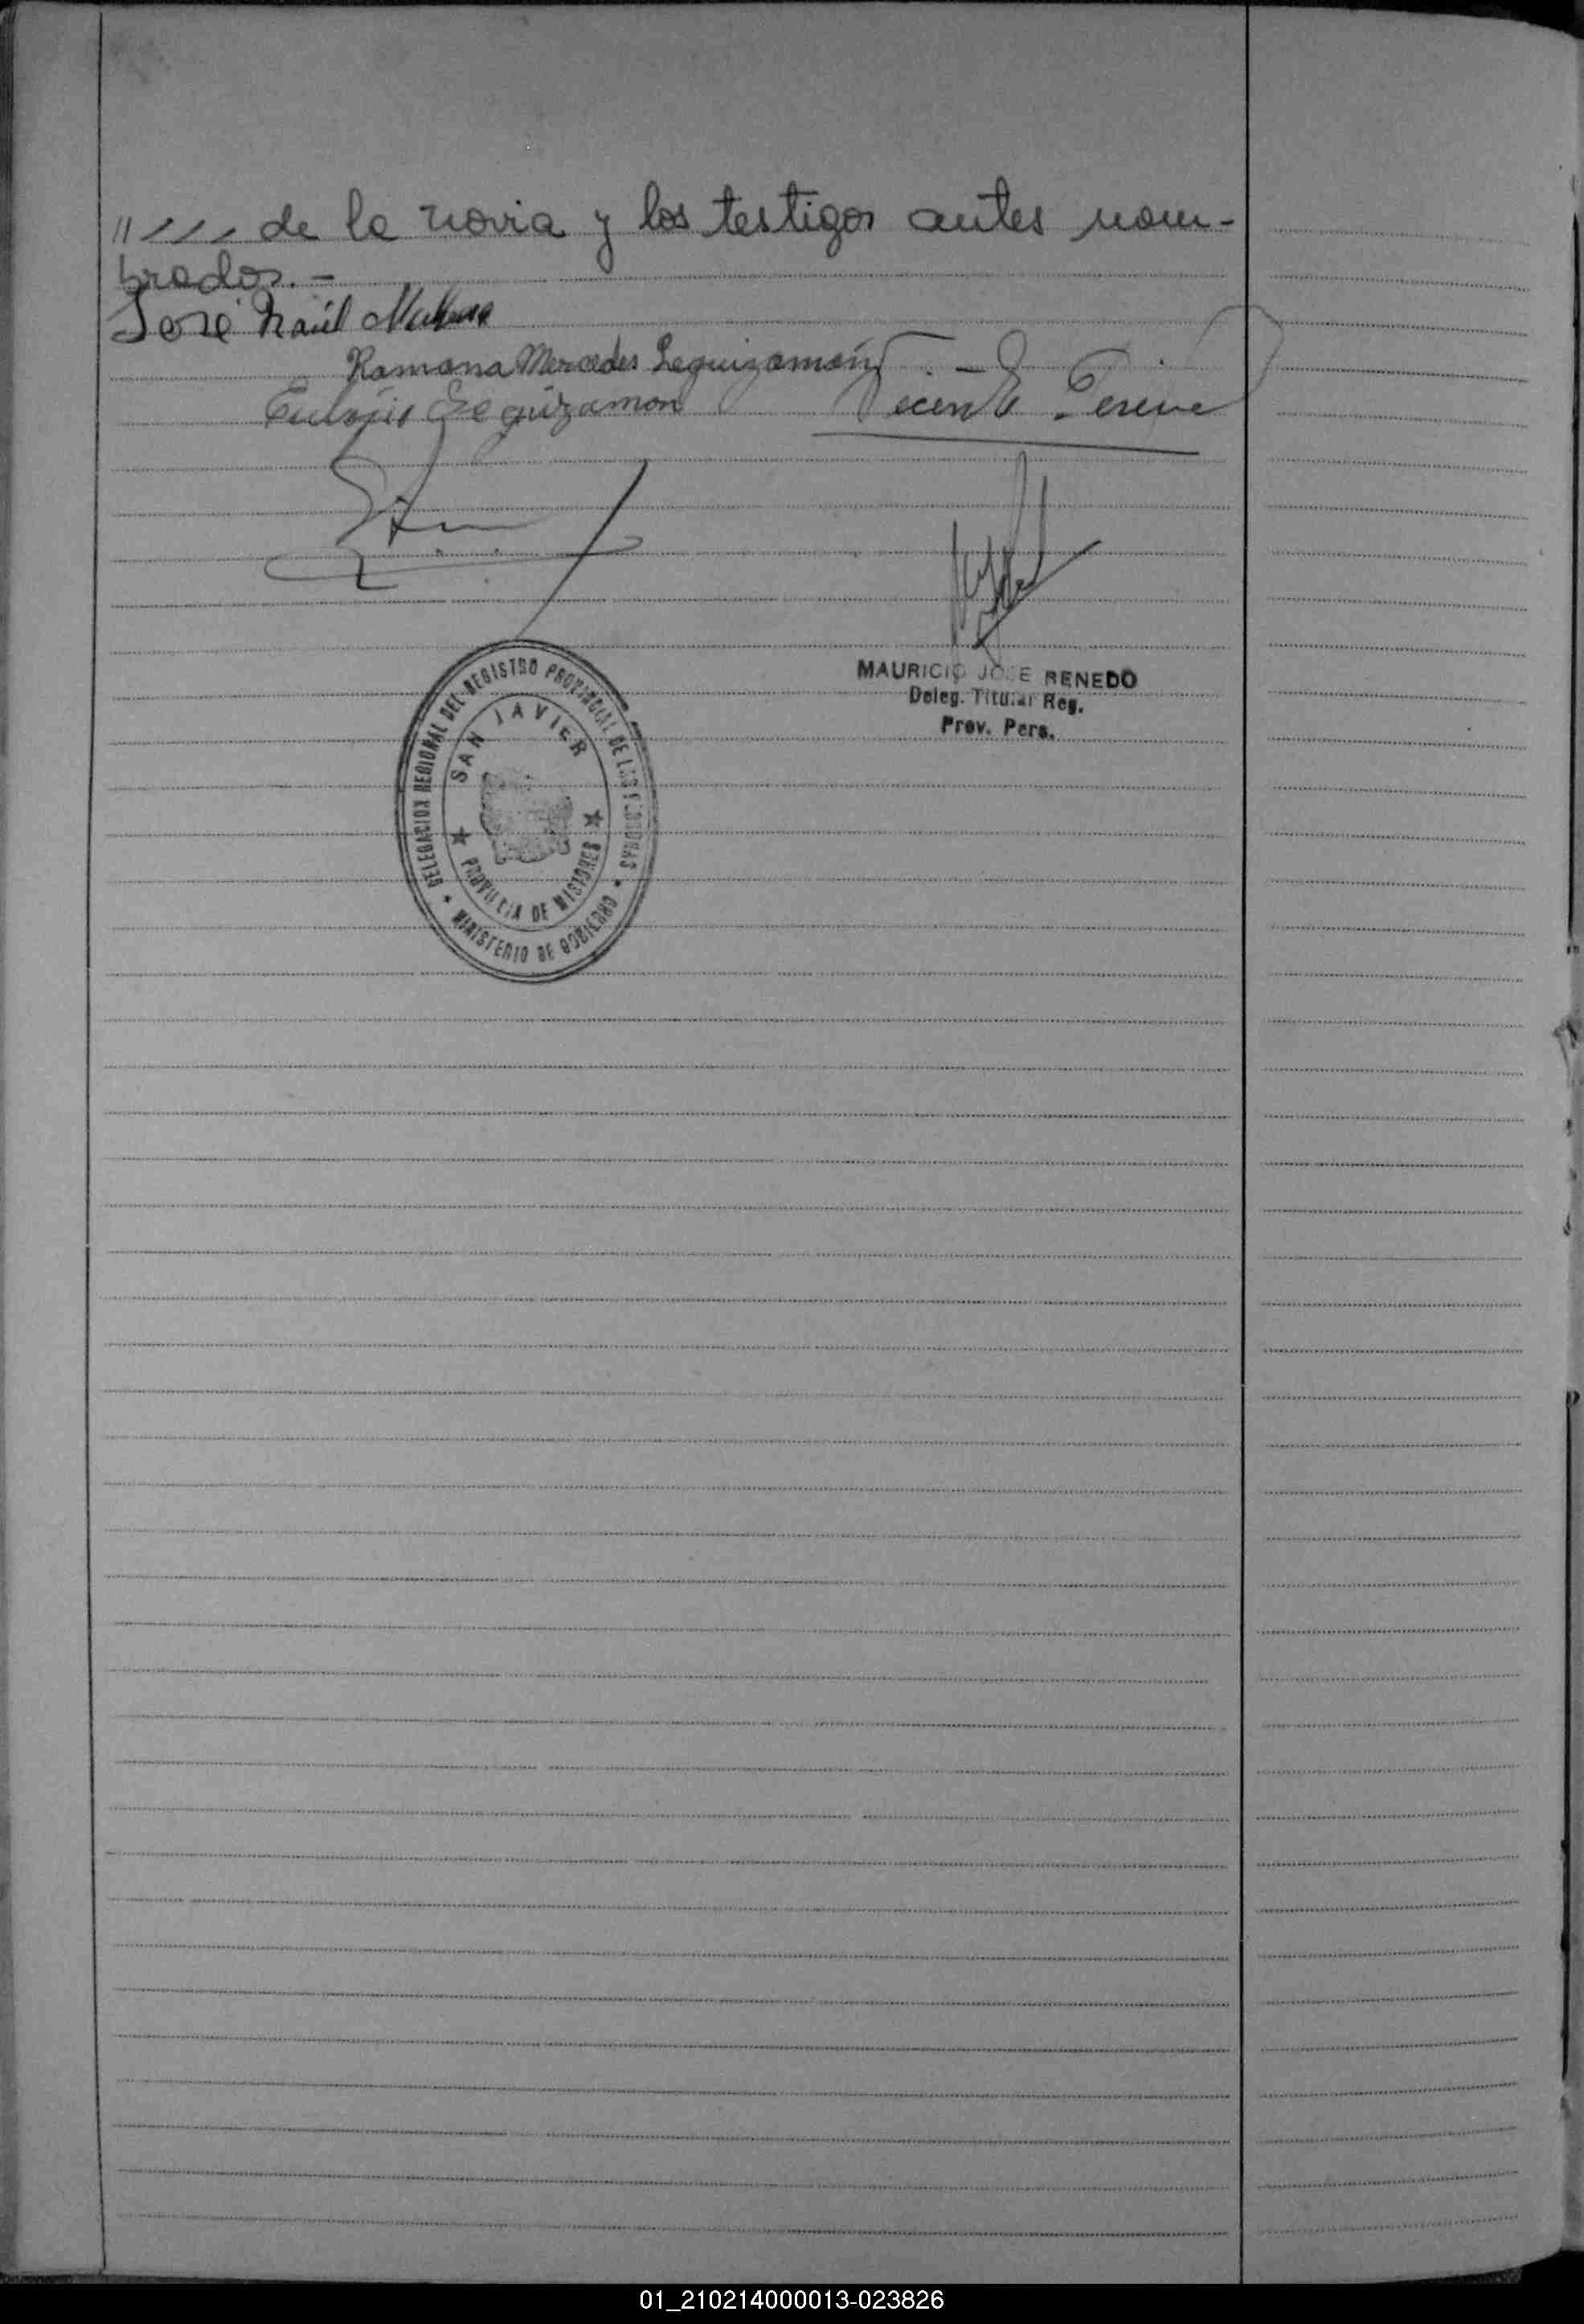 "//// de la novia y los testigos antes nom-
brados.-
José Raúl
Ramona Mercedes Leguizamón
Leguizamon Vicente Pereira
MAURICIO JOSE RENEDO
Deleg. Titular Reg.
Prov. Pers.
DELEGACION REGIONAL DEL REGISTRO PROVINCIAL DE LAS PERSONAS
SAN JAVIER
PROVINCIA DE MISIONES
MINISTERIO DE GOBIERNO
01_210214000013-023826